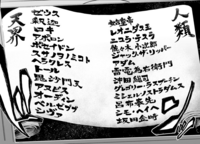 天界
ゼウス
釈迦
ロキ
アポロン
ポセイドン
スサノヲノミコト
ヘラクレス
毘沙門天
アヌビス
オーディン
ベルゼブブ
シヴァ
人類
始皇帝
レオニダス王
ニコラ・テスラ
佐々木小次郎
ジャック・ザ・リッパー
アダム
雷電為右衛門
沖田総司
グリゴリー・ラスプーチン
ミシェル・ノストラダムス
呂布奉先
シモ・ヘイヘ
坂田金時